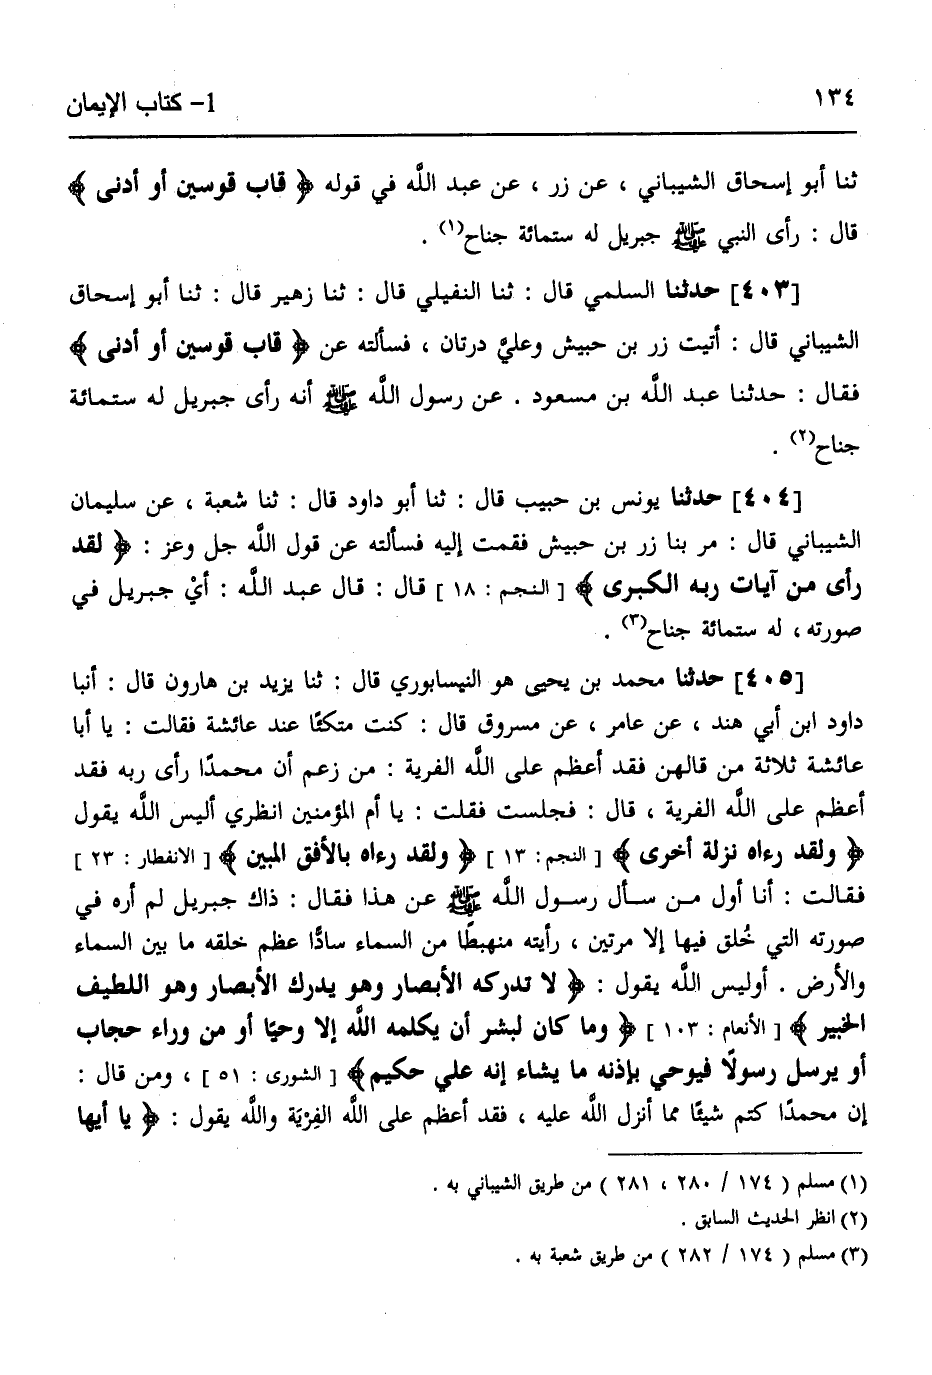 ١٣٤
1- كتاب الإيمان
ثنا أبو إسحاق الشيباني ، عن زر ، عن عبد اللَّه في قوله ﴿ قاب قوسين أو أدنى ﴾
قال : رأى النبي ﷺ جبريل له ستمائة جناح(١) .
[٤٠٣] حدثنا السلمي قال : ثنا النفيلي قال : ثنا زهير قال : ثنا أبو إسحاق
الشيباني قال : أتيت زر بن حبيش وعليَّ درتان ، فسألته عن ﴿ قاب قوسين أو أدنى ﴾
فقال : حدثنا عبد اللَّه بن مسعود . عن رسول اللَّه ﷺ أنه رأى جبريل له ستمائة
جناح(٢) .
[٤٠٤] حدثنا يونس بن حبيب قال : ثنا أبو داود قال : ثنا شعبة ، عن سليمان
الشيباني قال : مر بنا زر بن حبيش فقمت إليه فسألته عن قول اللَّه جل وعز : ﴿ لقد
رأى من آيات ربه الكبرى ﴾ [ النجم : ١٨ ] قال : قال عبد اللَّه : أيْ جبريل في
صورته ، له ستمائة جناح(٣) .
[٤٠٥] حدثنا محمد بن يحيى هو النيسابوري قال : ثنا يزيد بن هارون قال : أنبا
داود ابن أبي هند ، عن عامر ، عن مسروق قال : كنت متكئًا عند عائشة فقالت : يا أبا
عائشة ثلاثة من قالهن فقد أعظم على اللَّه الفرية : من زعم أن محمدًا رأى ربه فقد
أعظم على اللَّه الفرية ، قال : فجلست فقلت : يا أم المؤمنين انظري أليس اللَّه يقول
﴿ ولقد رءاه نزلة أخرى ﴾ [ النجم: ١٣ ] ﴿ ولقد رءاه بالأفق المبين ﴾ [ الانفطار : ٢٣ ]
فقالت : أنا أول من سأل رسول اللَّه ﷺ عن هذا فقال : ذاك جبريل لم أره في
صورته التي خُلق فيها إلا مرتين ، رأيته منهبطًا من السماء سادًّا عظم خلقه ما بين السماء
والأرض . أوليس اللَّه يقول : ﴿ لا تدركه الأبصار وهو يدرك الأبصار وهو اللطيف
الخبير ﴾ [ الأنعام : ١٠٣ ] ﴿ وما كان لبشر أن يكلمه اللَّه إلا وحيًا أو من وراء حجاب
أو يرسل رسولًا فيوحي بإذنه ما يشاء إنه علي حكيم﴾ [ الشورى : ٥١ ] ، ومن قال :
إن محمدًا كتم شيئًا مما أنزل اللَّه عليه ، فقد أعظم على اللَّه الفِرْيَة واللَّه يقول : ﴿ يا أيها
(١) مسلم ( ١٧٤ / ٢٨٠ ، ٢٨١ ) من طريق الشيباني به .
(٢) انظر الحديث السابق .
(٣) مسلم ( ١٧٤ / ٢٨٢ ) من طريق شعبة به .